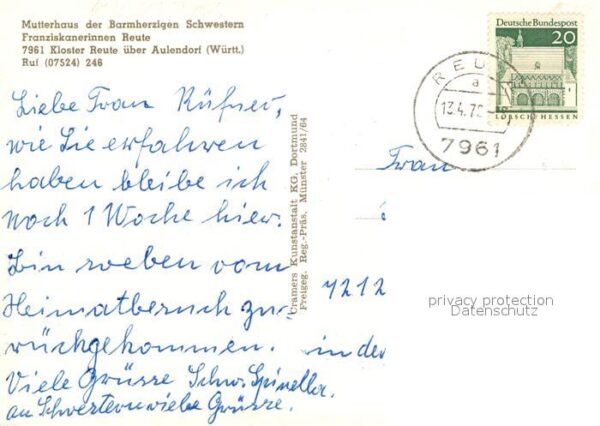 Mutterhaus der Barmherzigen Schwestern
Franziskanerinnen Reute
7961 Kloster Reute über Aulendorf (Württ.)
Ruf (07524) 246
Liebe Frau Küfner,
wie Sie erfahren
haben bleibe ich
noch 1 Woche hier.
Bin soeben vom
Heimatbesuch zu-
rückgekommen.
Viele Grüsse Schw.
an Schwestern viele Grüsse.
Cramers Kunstanstalt KG, Dortmund
Freigeg. Reg.-Präs. Münster 2841/64
Deutsche Bundespost
20
LORSCH/HESSEN
REUTE
a
13.4.70
7961
Frau
7212
in der
privacy protection
Datenschutz